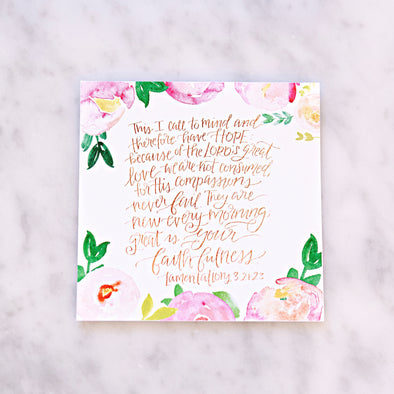 This I call to mind and
therefore have HOPE
because of the LORD'S great
love we are not consumed,
for His compassions
never fail They are
new every morning,
great is your
faithfulness
Lamentations 3.21-23